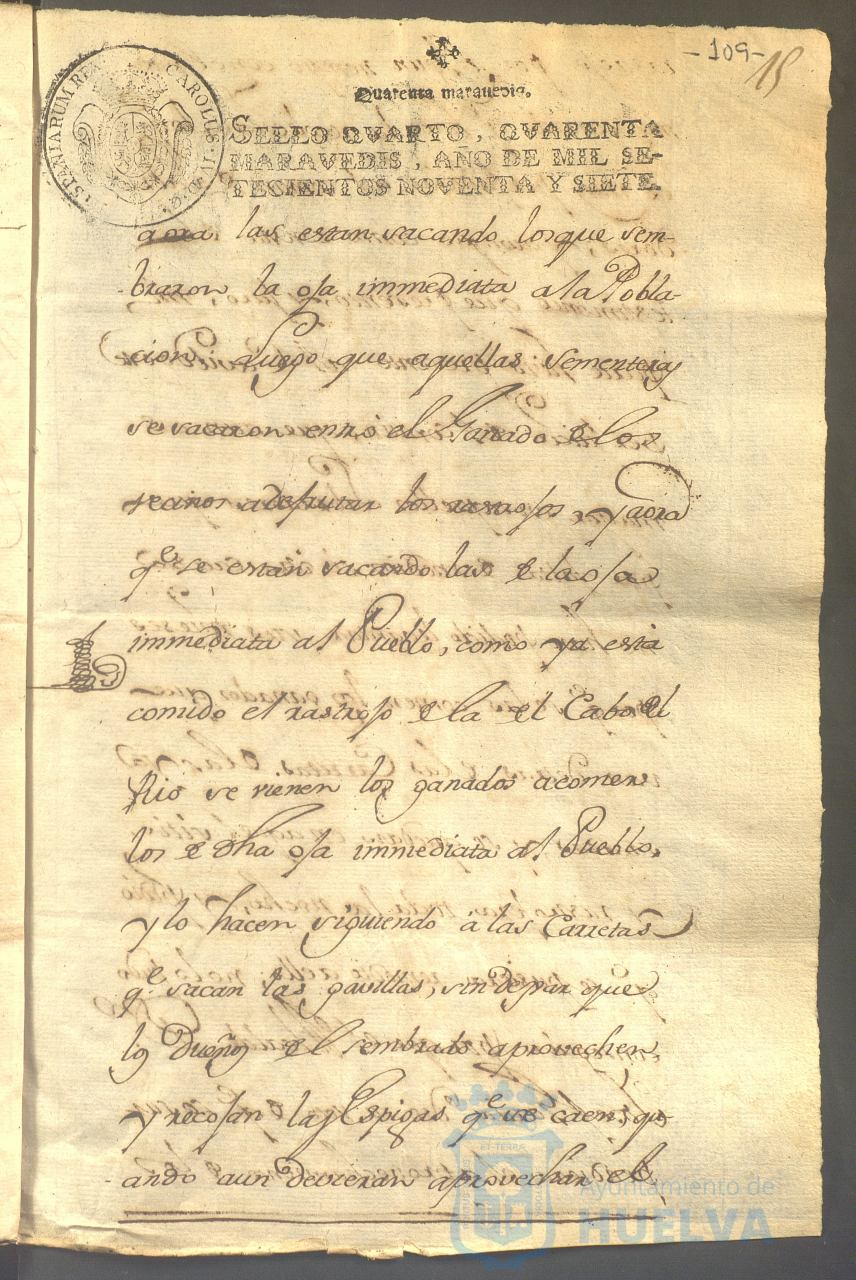 -109-
15
Quarenta maravedis.
HISPANIARUM REX CAROLUS IV D.G.
SELLO QVARTO, QVARENTA
MARAVEDIS, AÑO DE MIL SE-
TECIENTOS NOVENTA Y SIETE.
aora las estan sacando los que sem-
braron la oja immediata a la Pobla-
cion: Luego que aquellas sementeras
se sacaron entró el Ganado de los
vecinos a desfrutar los rastrojos, y aora
qe. se estan sacando las de la oja
immediata al Pueblo, como ya está
comido el rastrojo de la del Cabo del
Rio se vienen los ganados a comer
los de dha oja immediata al Pueblo,
y lo hacen siguiendo á las Carretas
qe. sacan las gavillas, sin dejar que
los dueños del sembrado aprovechen,
y recojan las Espigas qe. se caen, qu-
ando aun devieran aprovechar el
Ayuntamiento de
HUELVA